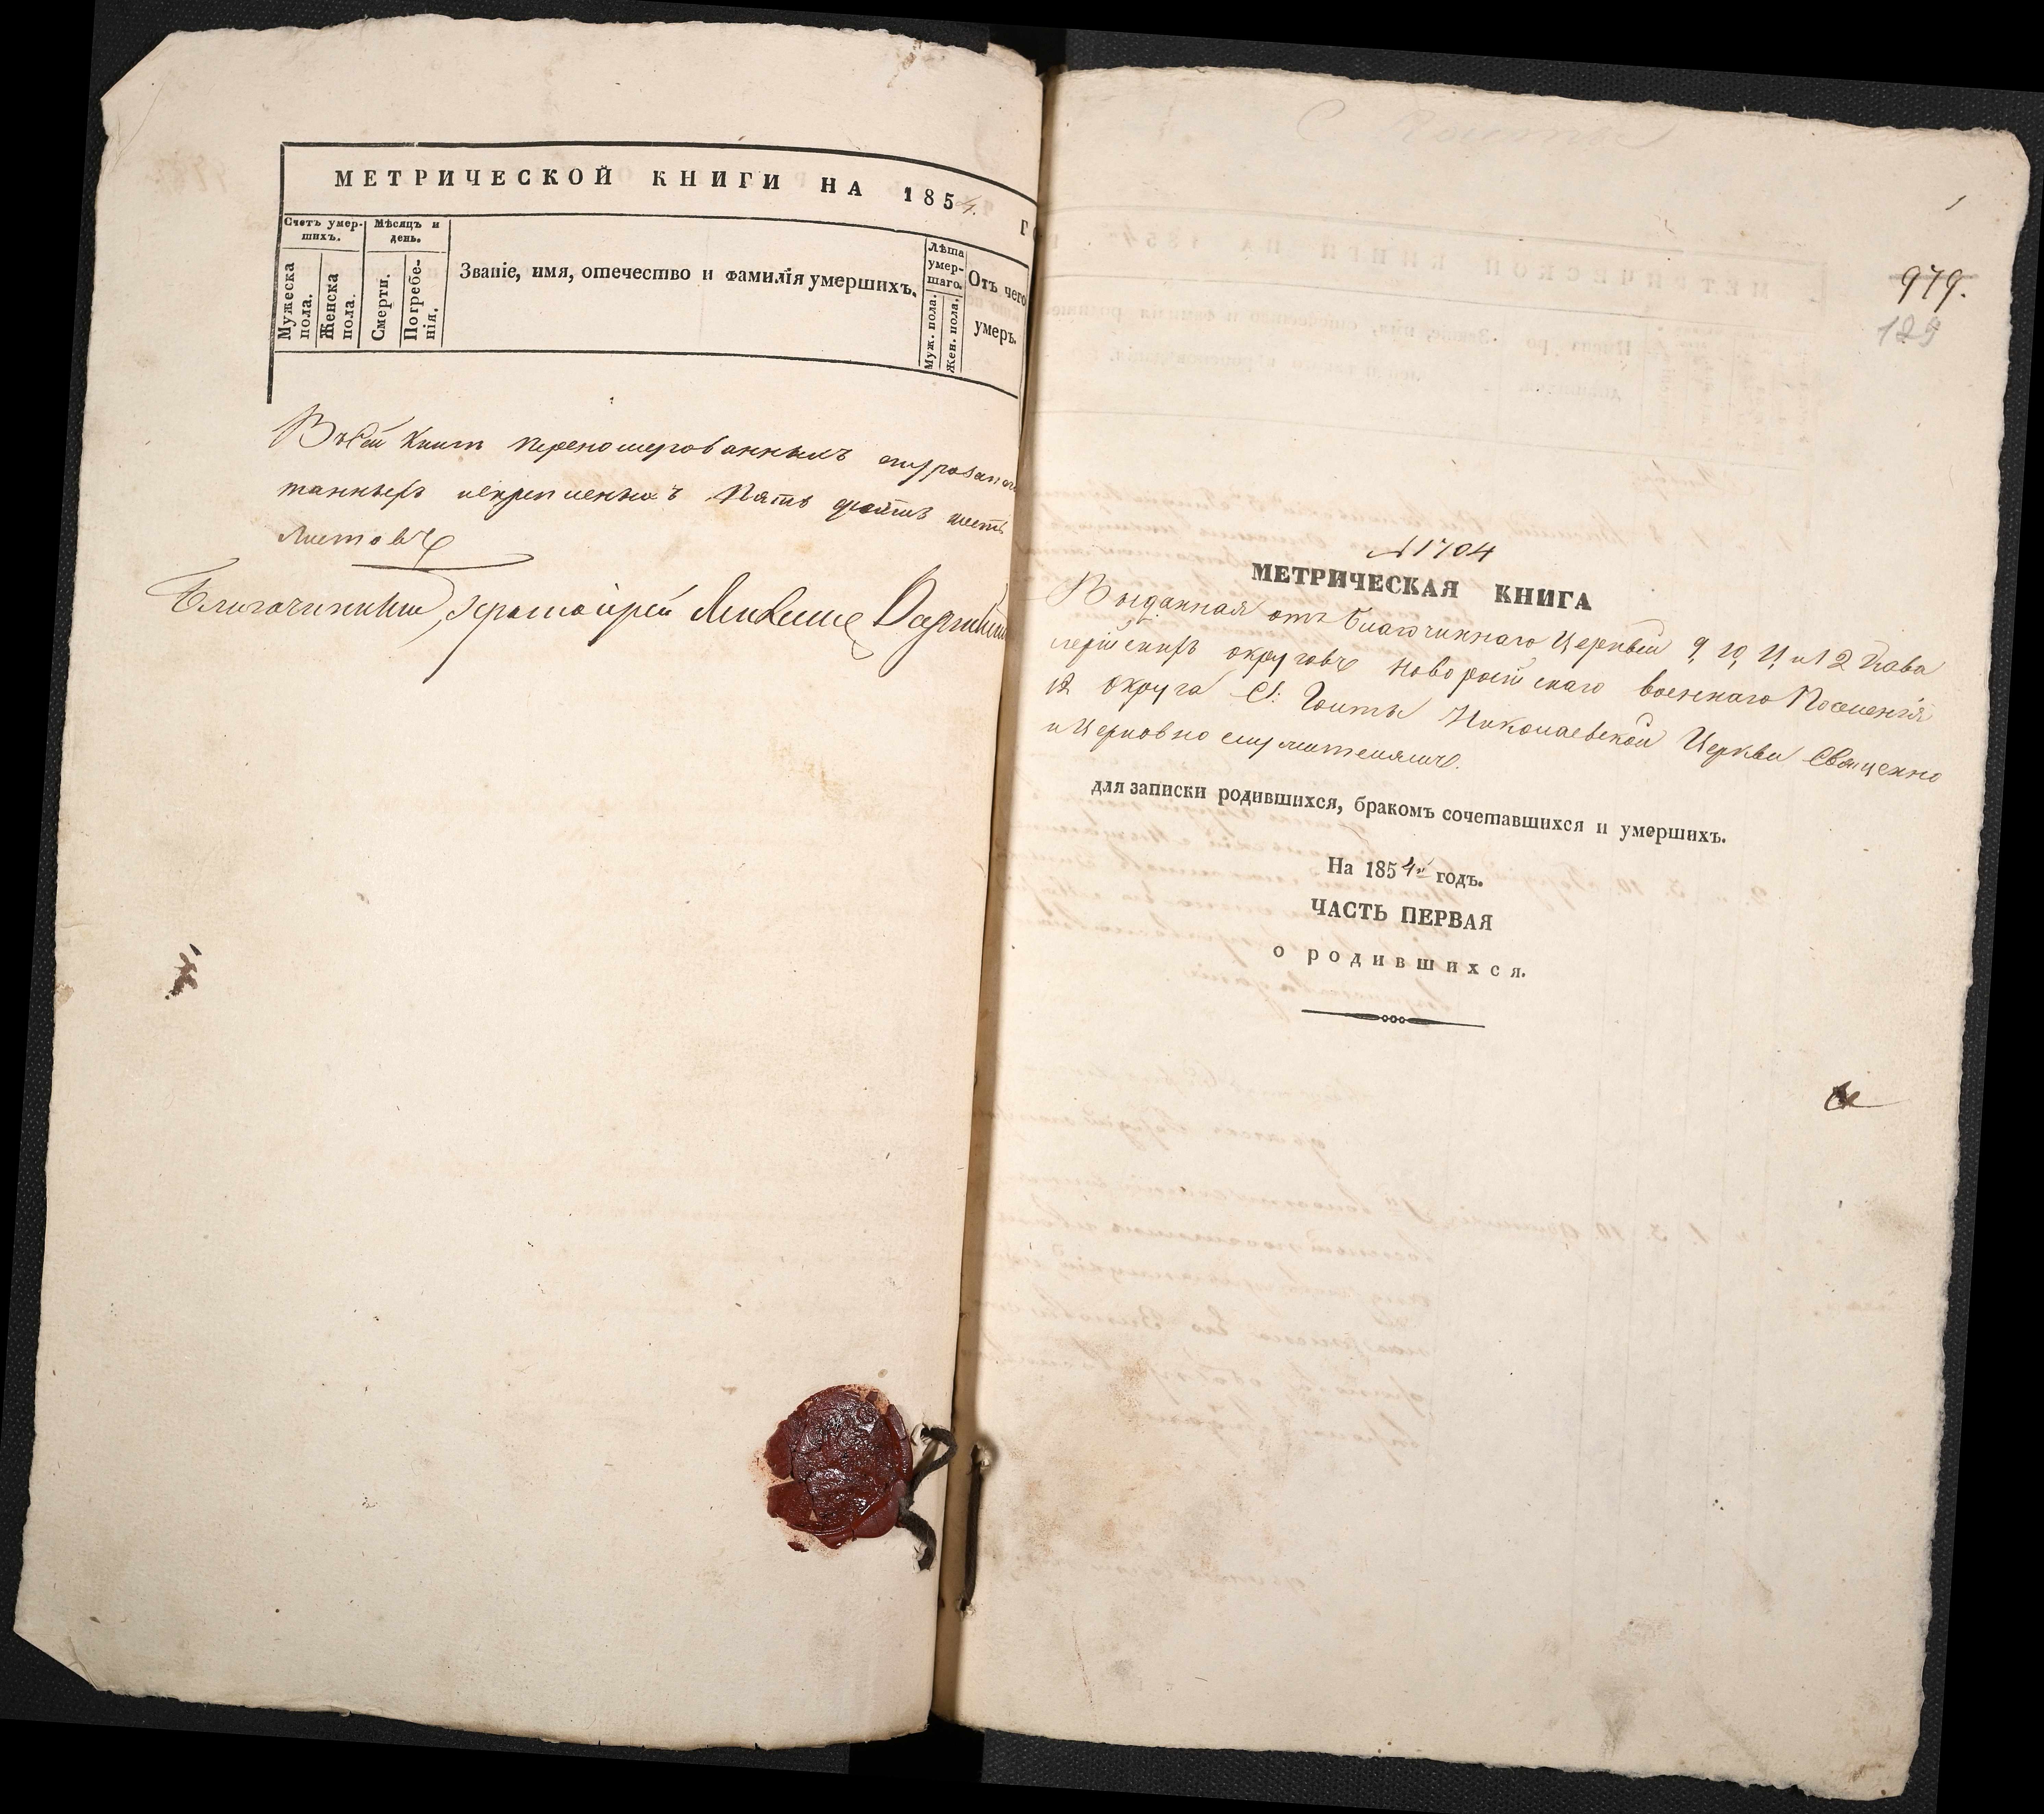 МЕТРИЧЕСКОЙ КНИГИ НА 1854.
Счетъ умер-
шихъ.
Мужеска
пола.
Женска
пола.
Мѣсяцъ и
день.
Смерти.
Погребе-
нія.
Званіе, имя, отечество и фамилія умершихъ.
Лѣта
умер-
шаго.
Муж. пола.
Жен. пола.
Отъ чего
умеръ.
Въ сей книгѣ перенумерованныхъ
танныхъ искрепленныхъ Пять десятъ шесть
Листовъ
Благочинный, Протоіерей
1
979.
129
№ 1704
МЕТРИЧЕСКАЯ КНИГА
Выданная отъ благочиннаго Церквей 9, 10, 11 и 12 Кава
лерійскихъ округовъ Новороссійскаго военнаго Поселенія
12 округа С: Николаевской Церкви Священно
и Церковно служителямъ.
для записки родившихся, бракомъ сочетавшихся и умершихъ.
На 1854й годъ.
ЧАСТЬ ПЕРВАЯ
о родившихся.